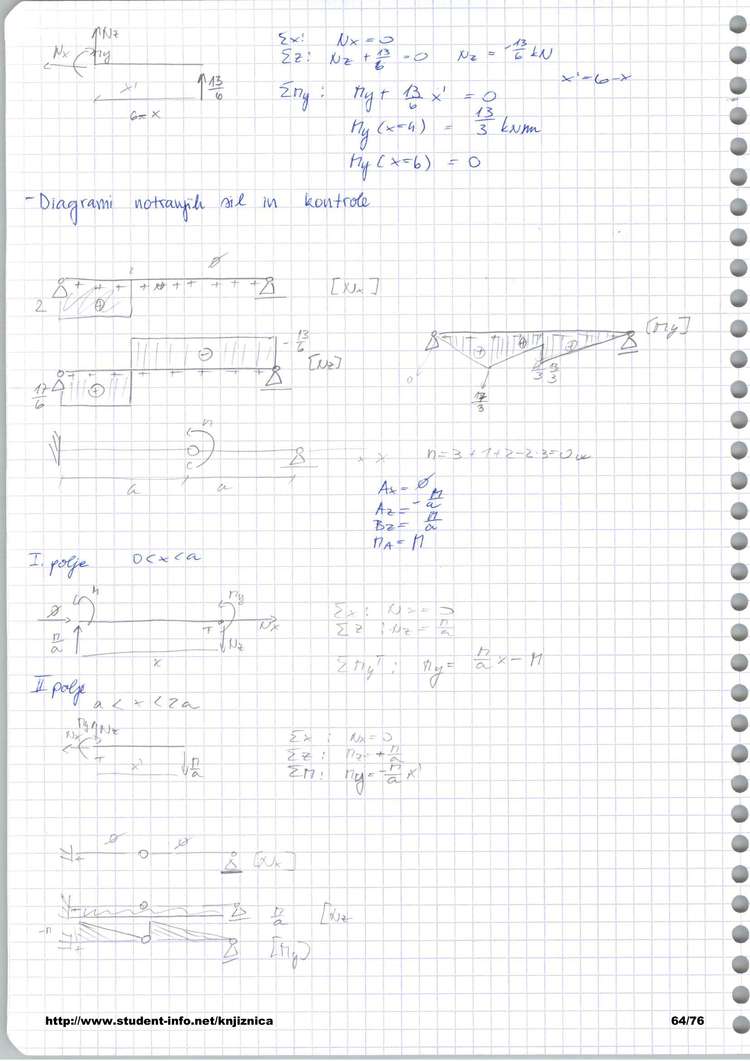 Nz
Nx My
x'
6-x
13/6
Σx: Nx = 0
Σz: Nz + 13/6 = 0 Nz = -13/6 kN
x' = 6-x
ΣMy: My + 13/6 x' = 0
My (x=4) = 13/3 kNm
My (x=6) = 0
- Diagrami notranjih sil in kontrole
2 + [Nx]
17/6 + - -13/6 [Nz]
0 17/3 13/3 [My]
M
C
a a
x
n = 3+1+2-2·3 = 0
Ax = 0
Az = -M/a
Bz = M/a
MA = M
I. polje 0<x<a
M My
0 M/a T Nx
Nz
x
Σx: Nx = 0
Σz: Nz = M/a
ΣMyT: My = M/a x - M
II polje
a < x < 2a
My Nz
Nx
T x' M/a
Σx: Nx = 0
Σz: Nz = + M/a
ΣM: My = - M/a x'
0 0 [Nx]
M/a [Nz
-M [My]
http://www.student-info.net/knjiznica 64/76